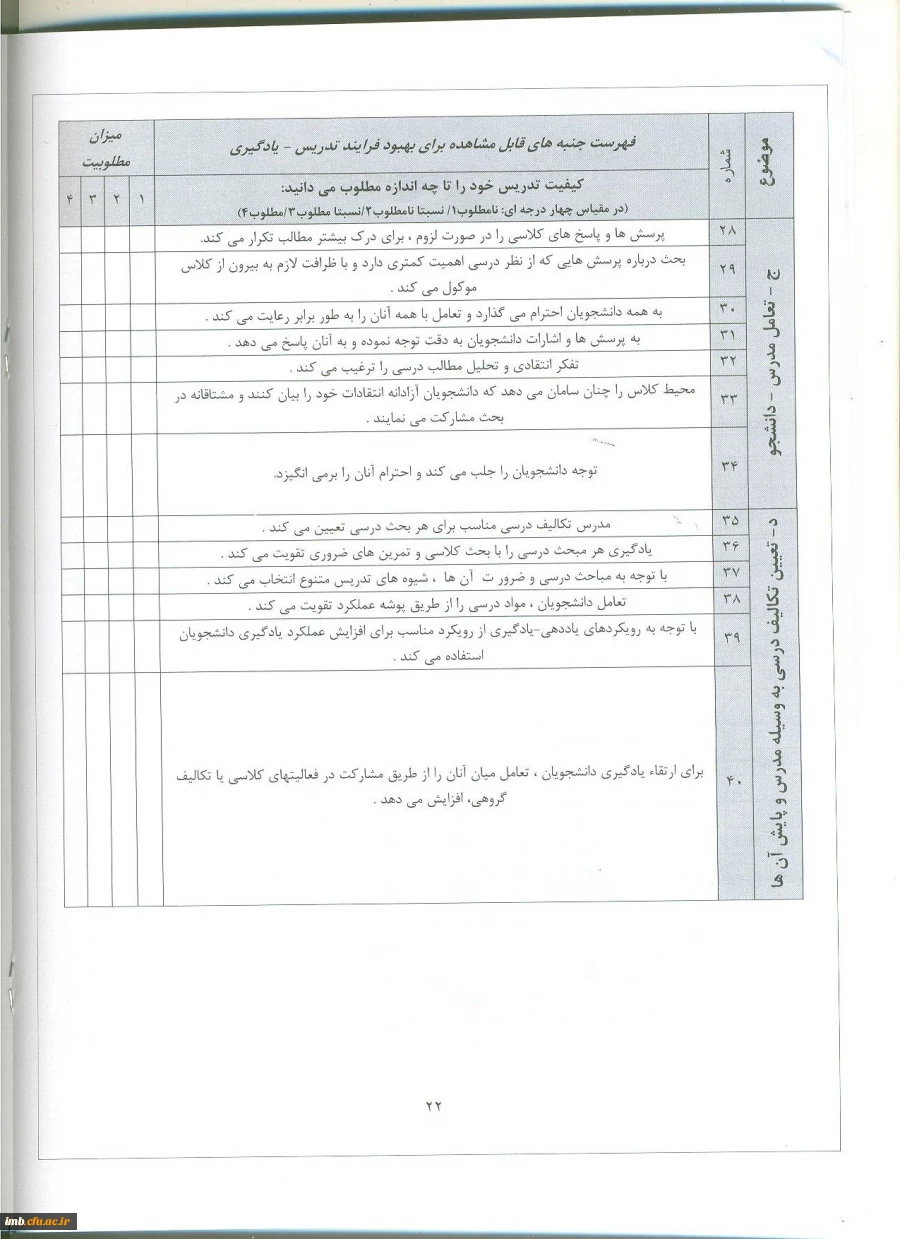 موضوع
شماره
فهرست جنبه های قابل مشاهده برای بهبود فرایند تدریس - یادگیری
میزان
مطلوبیت
کیفیت تدریس خود را تا چه اندازه مطلوب می دانید:
(در مقیاس چهار درجه ای: نامطلوب۱/ نسبتا نامطلوب۲/نسبتا مطلوب۳/مطلوب۴)
۱ ۲ ۳ ۴
ج - تعامل مدرس - دانشجو
۲۸ پرسش ها و پاسخ های کلاسی را در صورت لزوم ، برای درک بیشتر مطالب تکرار می کند.
۲۹ بحث درباره پرسش هایی که از نظر درسی اهمیت کمتری دارد و با ظرافت لازم به بیرون از کلاس
موکول می کند .
۳۰ به همه دانشجویان احترام می گذارد و تعامل با همه آنان را به طور برابر رعایت می کند .
۳۱ به پرسش ها و اشارات دانشجویان به دقت توجه نموده و به آنان پاسخ می دهد .
۳۲ تفکر انتقادی و تحلیل مطالب درسی را ترغیب می کند .
۳۳ محیط کلاس را چنان سامان می دهد که دانشجویان آزادانه انتقادات خود را بیان کنند و مشتاقانه در
بحث مشارکت می نمایند .
۳۴ توجه دانشجویان را جلب می کند و احترام آنان را برمی انگیزد.
د- تعیین تکالیف درسی به وسیله مدرس و پایش آن ها
۳۵ مدرس تکالیف درسی مناسب برای هر بحث درسی تعیین می کند .
۳۶ یادگیری هر مبحث درسی را با بحث کلاسی و تمرین های ضروری تقویت می کند .
۳۷ با توجه به مباحث درسی و ضرور ت آن ها ، شیوه های تدریس متنوع انتخاب می کند .
۳۸ تعامل دانشجویان ، مواد درسی را از طریق پوشه عملکرد تقویت می کند .
۳۹ با توجه به رویکردهای یاددهی-یادگیری از رویکرد مناسب برای افزایش عملکرد یادگیری دانشجویان
استفاده می کند .
۴۰ برای ارتقاء یادگیری دانشجویان ، تعامل میان آنان را از طریق مشارکت در فعالیتهای کلاسی یا تکالیف
گروهی، افزایش می دهد .
۲۲
imb.cfu.ac.ir